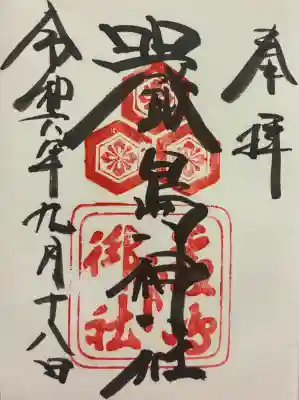 奉拝
嚴島神社
令和六年九月十八日